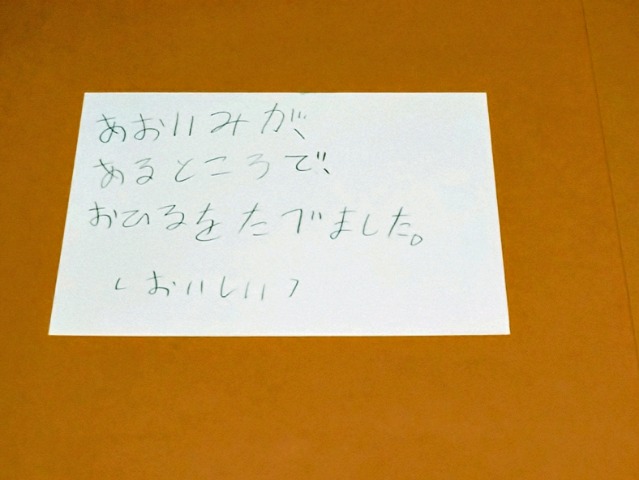 あおいみが、
あるところで、
おひるをたべました。
（おいしい）